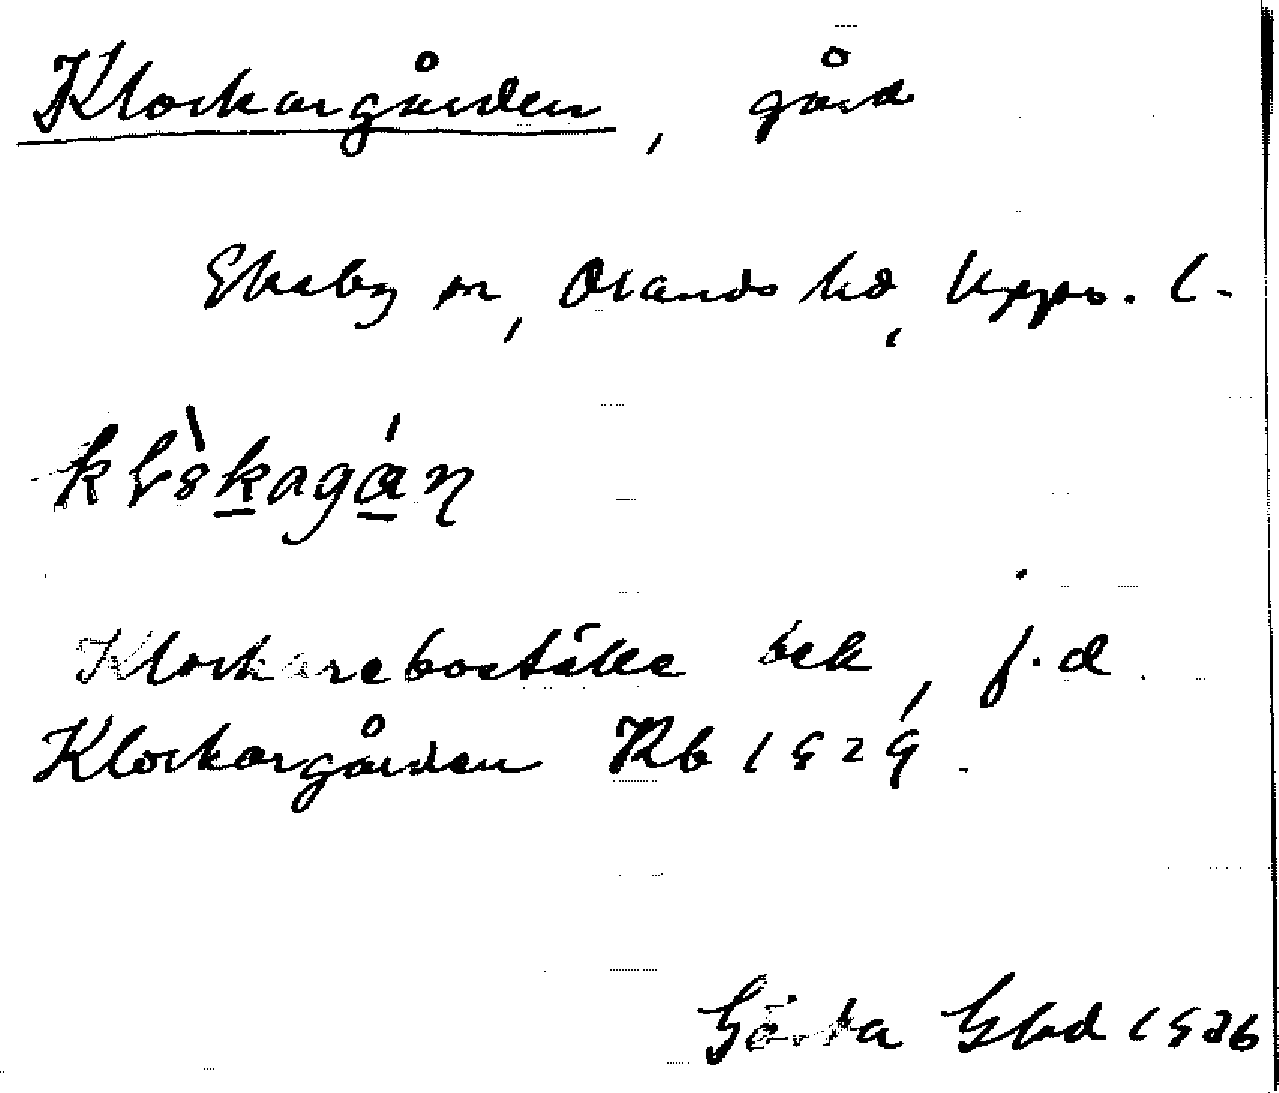 Klockargården, gård
Ekeby sn, Olands hd, Upps. l.
klòskagán
Klockareboställe bek, f.d.
Klockargården Kb 1929.
1936